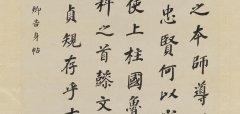 之本師導
忠賢何以
使上柱國魯
科之首懿文
貞規存乎士
卿告身帖